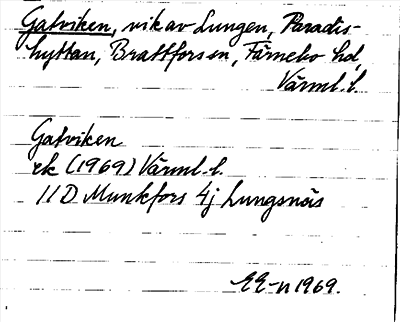 Gatviken, vik av Lungen, Paradis-
hyttan, Brattforsen, Färnebo hd,
Värml. l.
Gatviken
ek (1969) Värml. l.
11D Munkfors 4j Lungsnäs
EE-n 1969.